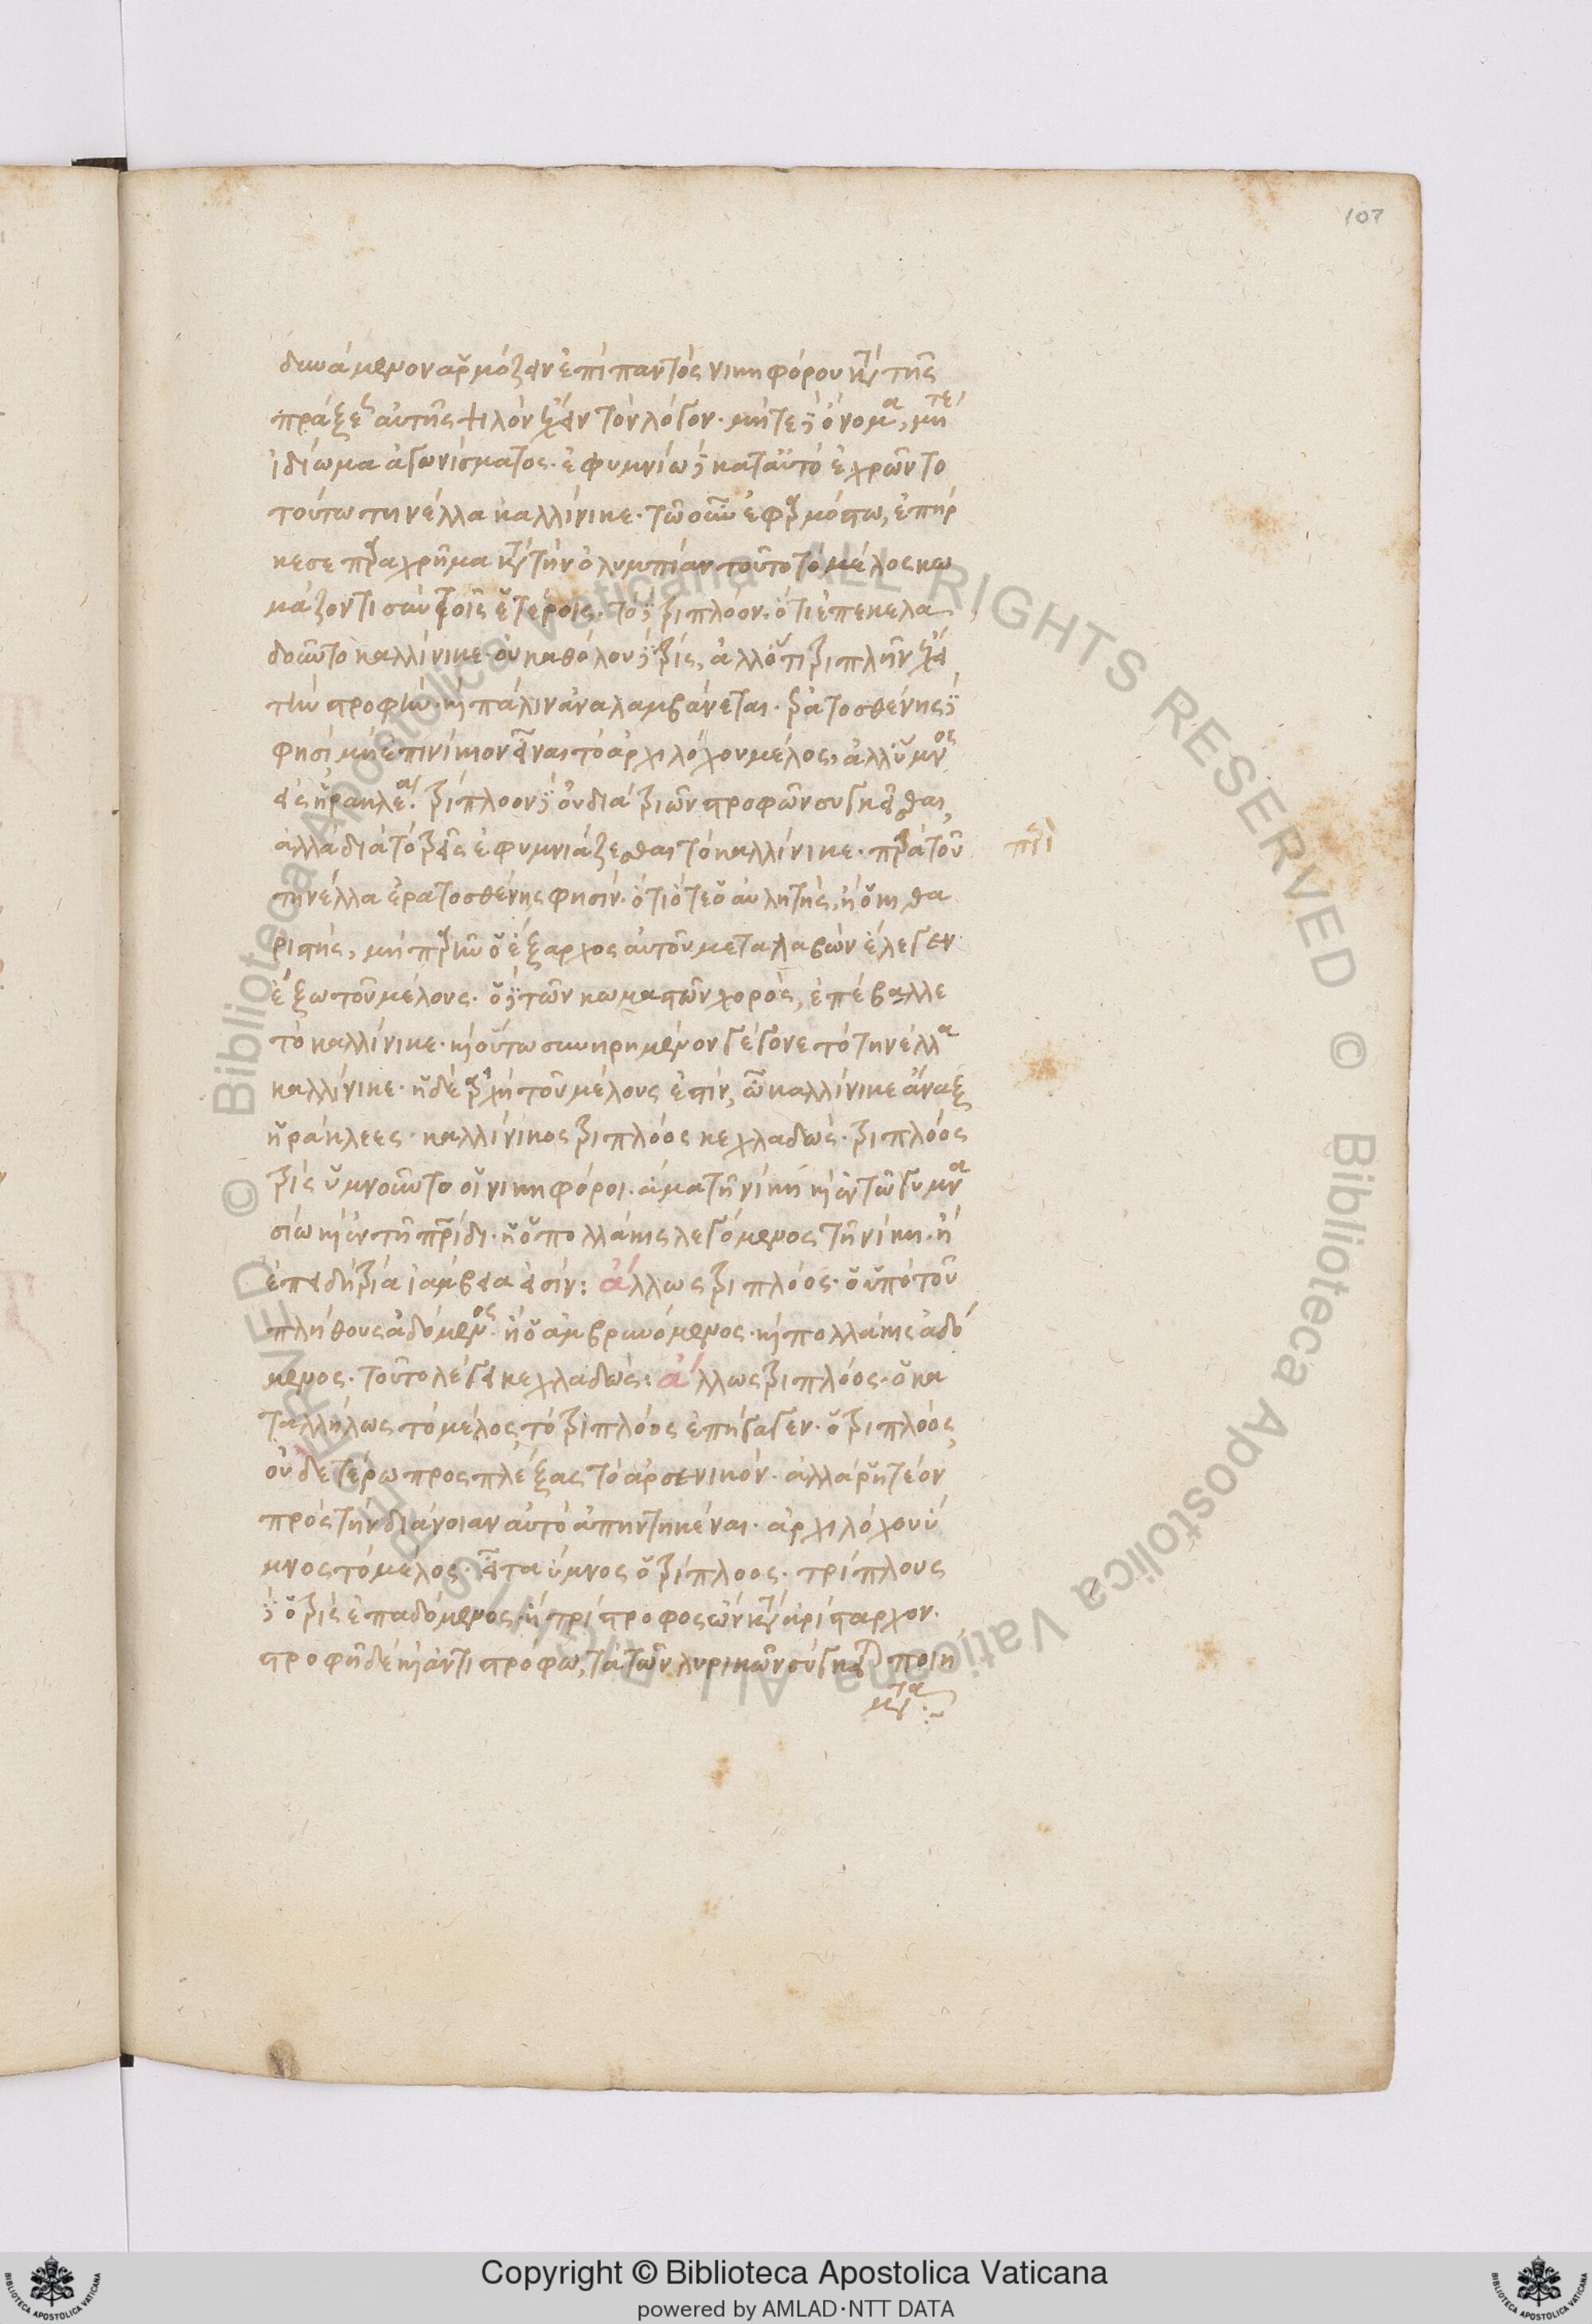 107
δυνάμενον ἁρμόζειν ἐπὶ παντὸς νικηφόρου κατὰ τῆς
πράξεως αὐτῆς ψιλὸν ἔχειν τὸν λόγον· μήτε δὲ ὄνομα, μήτε
ἰδίωμα ἀγωνίσματος· ἐφυμνίῳ δὲ κατὰ αὐτὸ ἐχρῶντο
τούτω τηνέλλα καλλίνικε· τῶ οὖν ἐφαρμόστω, ἐπήρ
κεσε παραχρῆμα κατὰ τὴν ὀλυμπίαν τοῦτο τὸ μέλος κω
μάζοντι σὺν τοῖς ἑτέροις· τὸ δὲ τριπλόον· ὅτι ἐπεκελα
δοῦντο καλλίνικε· οὐ καθόλου δὲ τρίς, ἀλλ' ὅτι τριπλῆν ἔχει
τὴν στροφὴν· καὶ πάλιν ἀναλαμβάνεται· ἐρατοσθένης δὲ
φησὶ μὴ ἐπινίκιον εἶναι τὸ ἀρχιλόχου μέλος, ἀλλ' ὕμνος
εἰς ἡρακλέα· τρίπλοον δὲ οὐ διὰ τριῶν στροφῶν συγκεῖσθαι,
ἀλλὰ διὰ τὸ τρεῖς ἐφυμνιάζεσθαι τὸ καλλίνικε· παρὰ τοῦ
περὶ
τηνέλλα ἐρατοσθένης φησίν· ὅτι ὅτε ὁ αὐλητὴς, ἢ ὁ κιθα
ριστὴς, μὴ παρῆν ὁ ἔξαρχος αὐτοῦ μεταλαβὼν ἔλεγεν
ἔξω τοῦ μέλους· ὁ δὲ τῶν κωμαστῶν χορὸς, ἐπέβαλλε
τὸ καλλίνικε· καὶ οὕτω συνηρημένον γέγονε τὸ τηνέλλα
καλλίνικε· ἡ δὲ ἀρχὴ τοῦ μέλους ἐστὶν, ὦ καλλίνικε ἄναξ
ἡράκλεες· καλλίνικος τριπλόος κεχλαδώς· τριπλόος
τρὶς ὑμνοῦντο οἱ νικηφόροι· ἅμα τῆ νίκη καὶ ἐν τῶ γυμνα
σίω καὶ ἐν τῆ πατρίδι· ἢ ὁ πολλάκις λεγόμενος τῆ νίκη· ἢ
ἐπειδὴ τρία ἰαμβεῖα εἰσίν: ἄλλως τριπλόος· ὁ ὑπὸ τοῦ
πλήθους ἀδόμενος· ἢ ὁ ἁμβρυνόμενος· καὶ πολλάκις ἀδό
μενος· τοῦτο λέγει κεχλαδώς: ἄλλως τριπλόος· ὁ κα
ταλλήλως τὸ μέλος τὸ τριπλόος ἐπήγαγεν· ὁ τριπλόος
οὐδετέρω προσπλέξας τὸ ἀρσενικόν· ἀλλὰ ῥητέον
πρὸς τὴν διάνοιαν αὐτὸ ἀπηντηκέναι· ἀρχιλόχου ὕ
μνος τὸ μέλος· εἶτα ὕμνος ὁ τρίπλοος· τρίπλους
δὲ ὁ τρὶς ἐπαδόμενος· ἢ τρίστροφος ὢν κατὰ ἀρίσταρχον·
στροφῆ δὲ καὶ ἀντιστρόφω, τὰ τῶν λυρικῶν σύγκειται ποιή
ματα
Copyright © Biblioteca Apostolica Vaticana
powered by AMLAD·NTT DATA